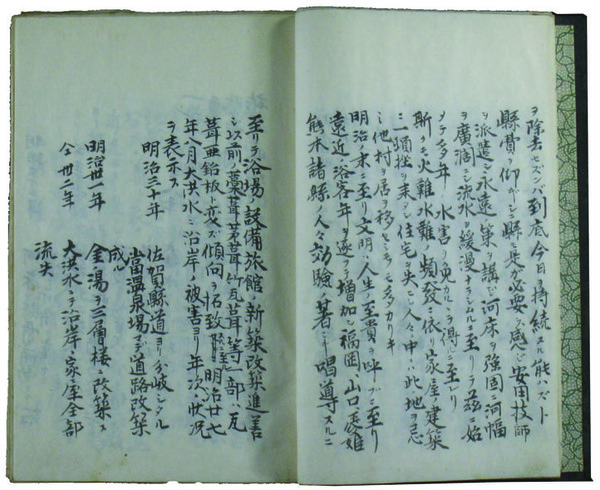 ヲ除去セズンバ到底今日ヲ持続スル能ハズト
縣骨ヲ仰ガ縣モ其必要ヲ感ジ安田技師
ヲ派遣シ永遠策ヲ講ジ河床ヲ強固ニ河幅
ヲ廣濶ニ流水ヲ緩漫ナラシムルニ至リテ茲ニ始
メテ多年ノ水害ヲ免カルヽヲ得ニ至レリ
斯ク火難水難ノ頻發ニ依リ家屋ノ建築
ニ頓挫ヲ来シ住宅ヲ失シ人々中ニハ此地ヲ忌
ミ他村ニ居ヲ移セシモノモ多カリキ
明治ノ末ニ至リ文明ノ人生ノ至貴ヲ呼ブニ至リ
遠近ノ浴客年ヲ逐テ増加シ福岡、山口、長崎
熊本諸縣ノ人々効驗ノ著シキヲ唱導スルニ
至リテ浴場ノ設備旅館ノ新築改築進善
シ以前ノ藁葺茅葺竹瓦葺等ノ一部ハ瓦
葺亜鉛板ト変ズル傾向ヲ招致 明治廿七
年八月大洪水ニ沿岸ノ被害ヨリ年次ノ状況
ヲ表示ス
明治三十年 佐賀縣道ヨリ分岐シタル
當温泉場マデ道路改築
成ル
明治卅一年 金湯ヲ三層楼ニ改築ス
仝卅二年 大洪水ニテ沿岸ノ家屋全部
流失